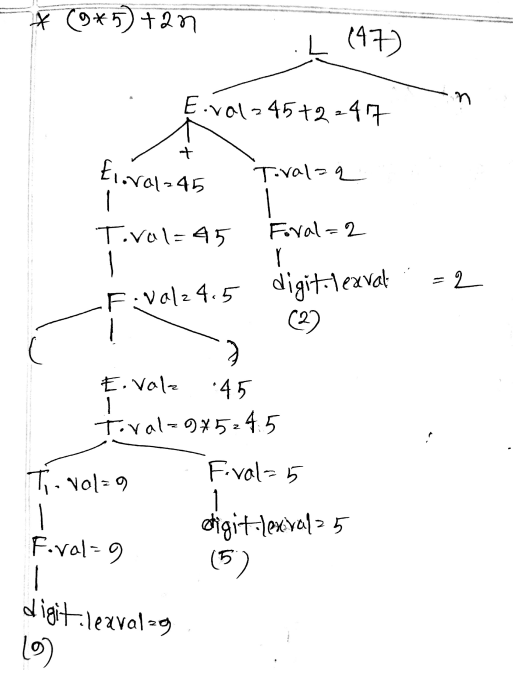 * (9*5)+2n
L (47)
E.val=45+2=47 n
+
E₁.val=45 T.val=2
T.val=45 F.val=2
F.val=4.5 digit.lexval = 2
(2)
( )
E.val= .45
T.val=9*5=4.5
T₁.val=9 F.val=5
digit.lexval=5
F.val=9 (5)
digit.lexval=9
(9)